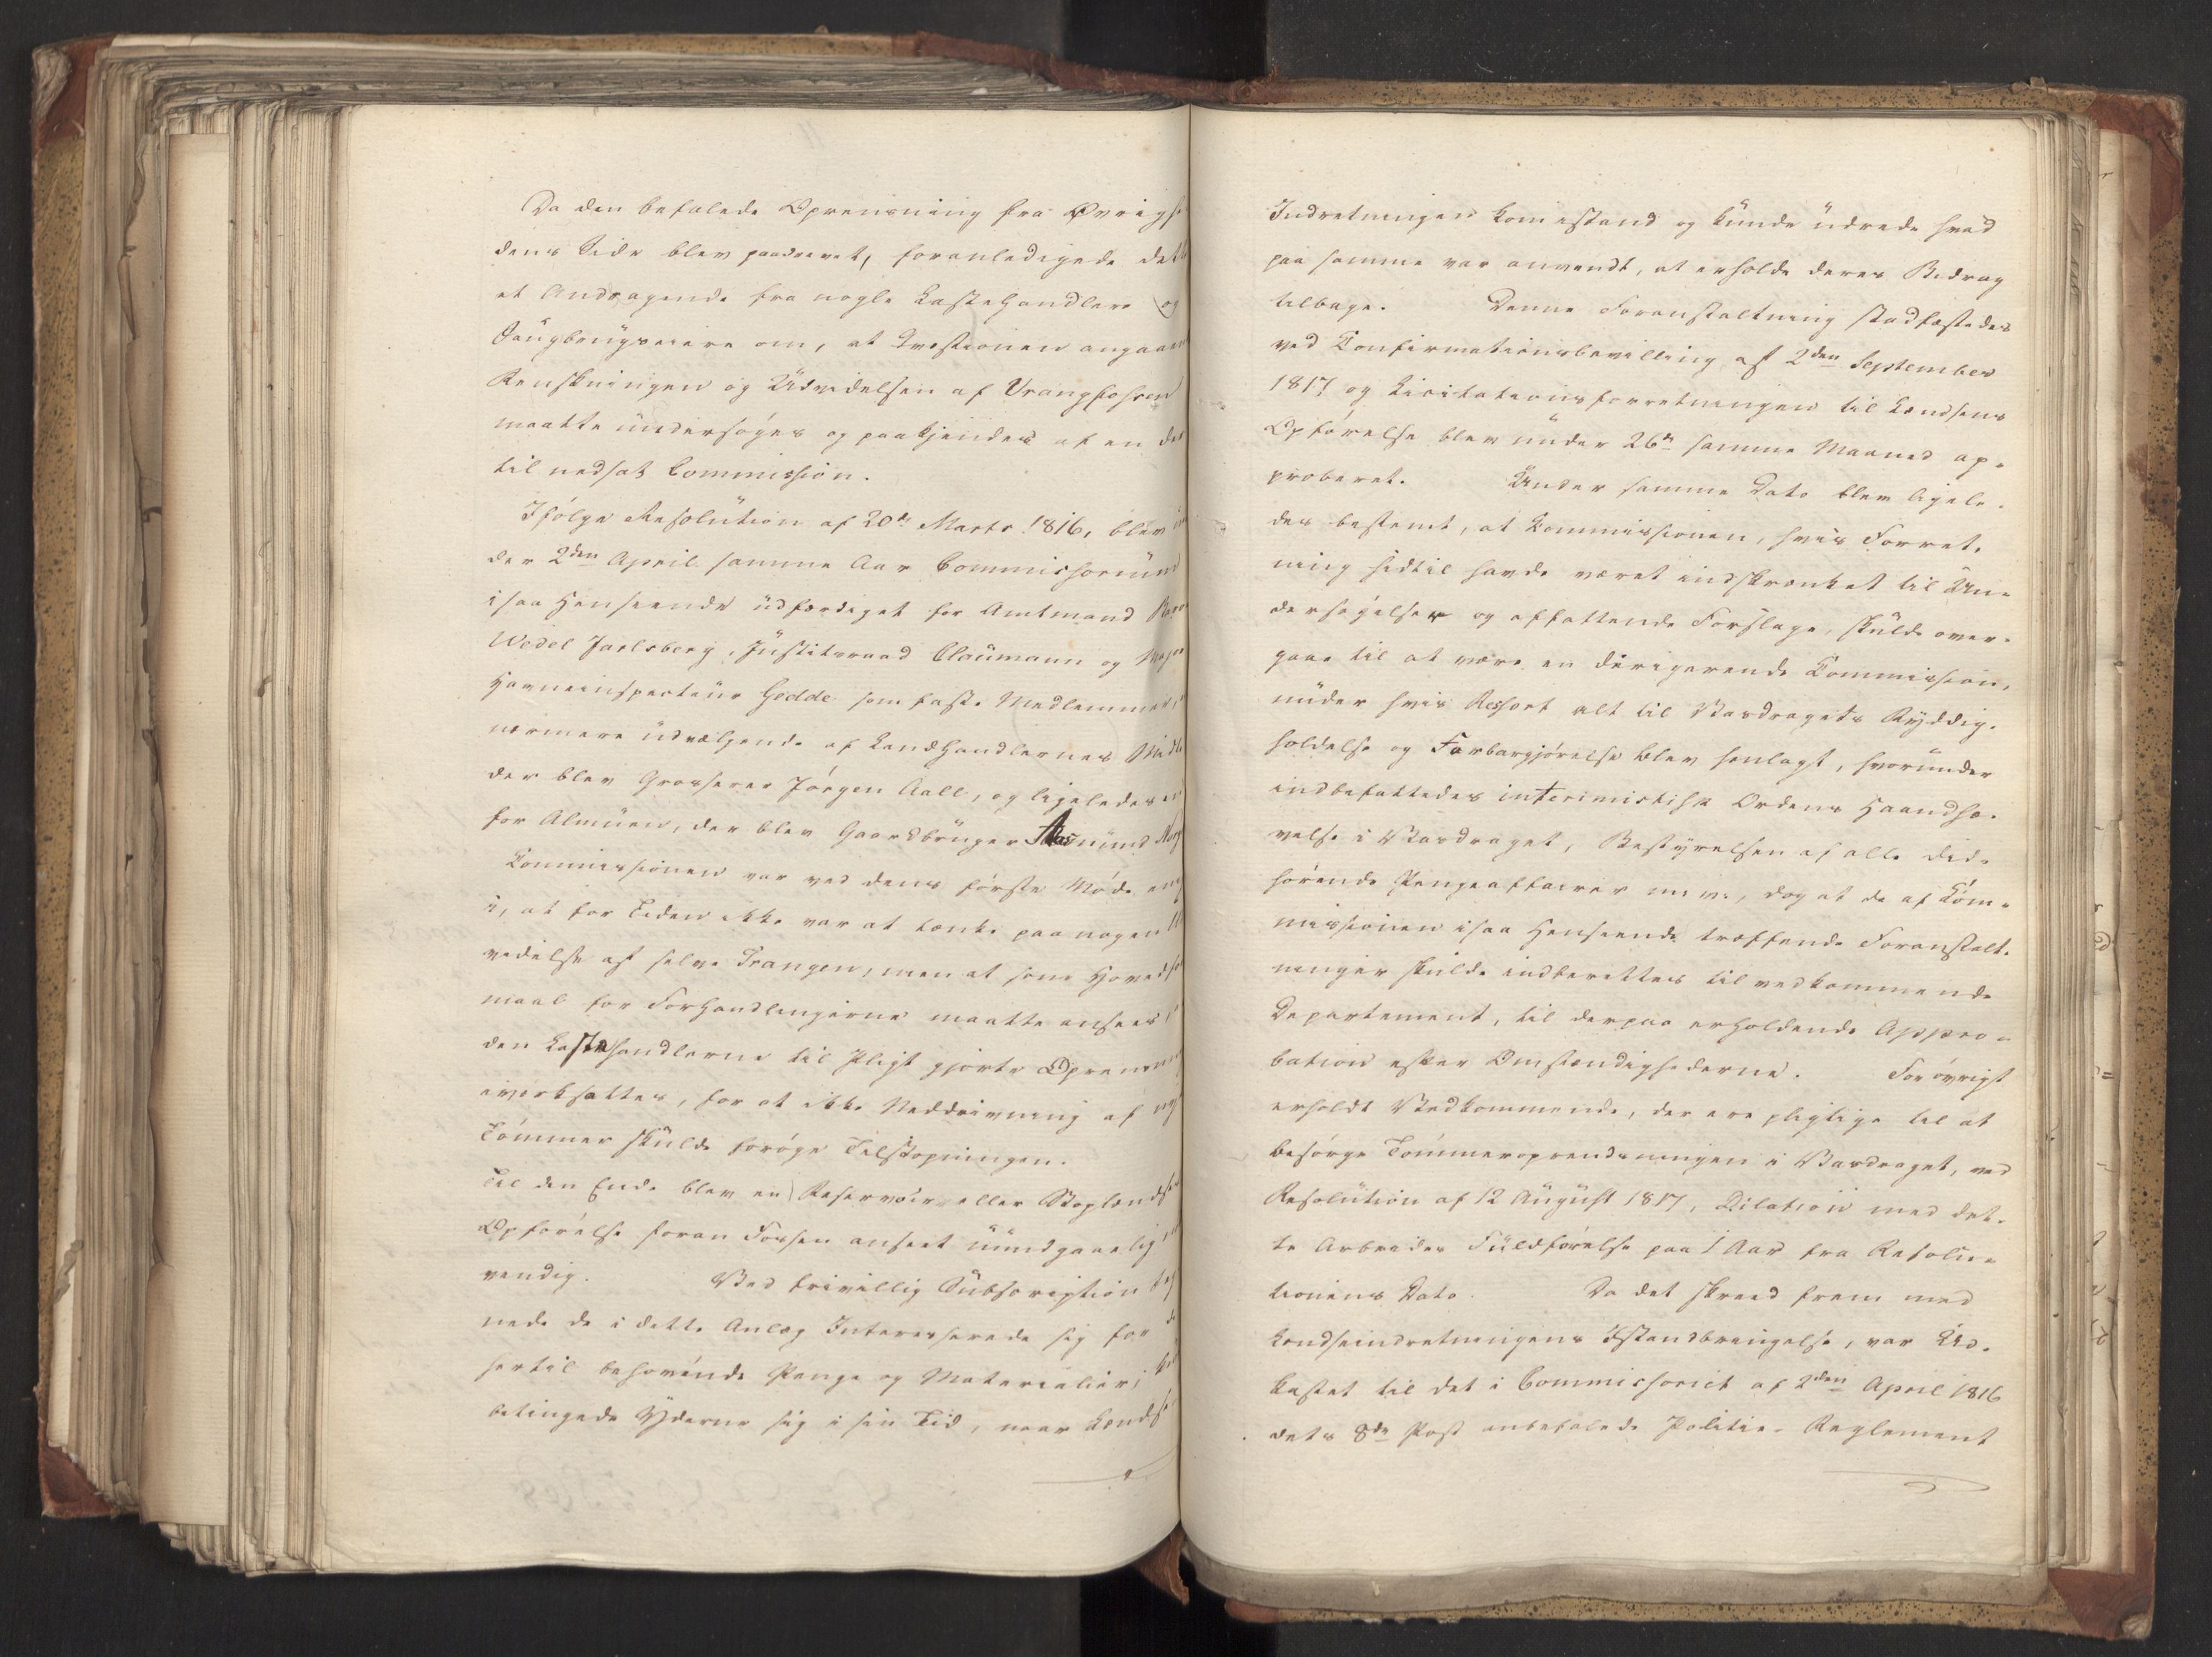 Da den befalede Oprensning fra Øvrighe
dens Side blev paadrevet, foranledigede dette
et Andragende fra nogle Lastehandlere og
Saugbrugseiere om, at Qvæstionen angaaen
Renskningen og Udvidelsen af Vrangfossen
maatte undersøges og paakjendes af en der
til nedsat Commission.
Ifølge Resolution af 20de Marts 1816, blev un
der 2den April samme Aar Commissorium
i saa Henseende udfærdiget for Amtmand Baron
Wedel Jarlsberg, Justitsraad Claumann og Major
Havneinspecteur Gedde som faste Medlemmer,
nærmere udvælgende af Landhandlernes Midte
der blev Grosserer Jørgen Aall, og ligeledes en
for Almuen, der blev Gaardbruger Aasmund
Commissionen var ved dens første Møde enig
i, at for Tiden ikke var at tænke paa nogen Ud
videlse af selve Trangen, men at som Hoved for
maal for Forhandlingerne maatte ansees,
den Lastehandlerne til Pligt gjorte Oprensning
iværksattes, for at ikke Neddrivning af nyt
Tømmer skulde forøge Tilstopningen.
Til den Ende blev en Reservoir eller Stoplændse
Opførelse foran Fossen anseet uundgaaelig nød
vendig. Ved frivillig Subscription teg
nede de i dette Anlæg Interesserede sig for de
hertil behøvende Penge og Materialier; hvor
betingede Yderne sig i sin Tid, naar Lændse
Indretningen kom istand og kunde udrede hvad
paa samme var anvendt, at erholde deres Bidrag
tilbage. Denne Foranstaltning stadfæstedes
ved Confirmationsbevilling af 2den September
1817 og Licitationsforretningen til Lændsens
Opførelse blev under 26de samme Maaned ap-
proberet. Under samme Dato blev ligele-
des bestemt, at Kommissionen, hvis Forret-
ning hidtil havde været indskrænket til Un-
dersøgelser og affattende Forslage, skulde over-
gaae til at være en dirigerende Commission,
under hvis Ressort alt til Vasdragets Ryddig-
holdelse og Farbargjørelse blev henlagt, hvorunder
indbefattedes interimistisk Ordens Haandhæ-
velse i Vasdraget, Bestyrelsen af alle did-
hørende Pengeaffairer m. v., dog at de af Kom-
missionen i saa Henseende træffende Foranstalt-
ninger skulde indberettes til vedkommende
Departement, til derpaa erholdende Appro-
bation efter Omstændighederne. Forøvrigt
erholdt Vedkommende, der ere pligtige til at
besørge Tømmeroprendsningen i Vasdraget, ved
Resolution af 12 August 1817, Dilation med det-
te Arbeides Fuldførelse paa 1 Aar fra Resolu-
tionens Dato. Da det skreed frem med
Lændseindretningens Istandbringelse, var Ud-
kastet til det i Commissoriet af 2den April 1816
dets 8de Post anbefalede Politie-Reglement